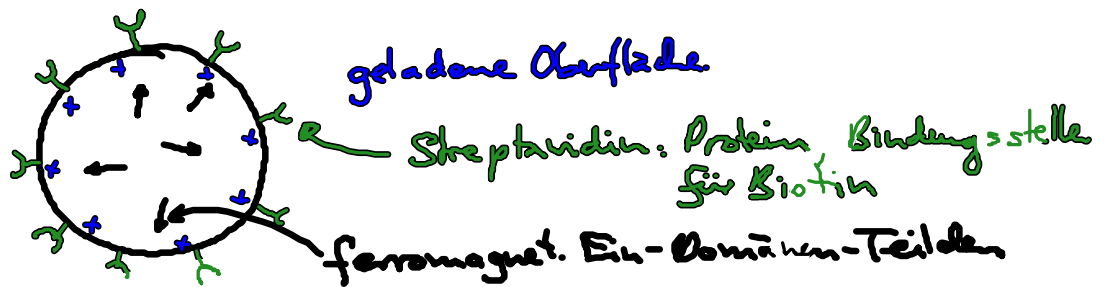 geladene Oberfläche.
Streptavidin: Protein, Bindungsstelle
für Biotin
ferromagnet. Ein-Domänen-Teilchen
+ + + + + + + +